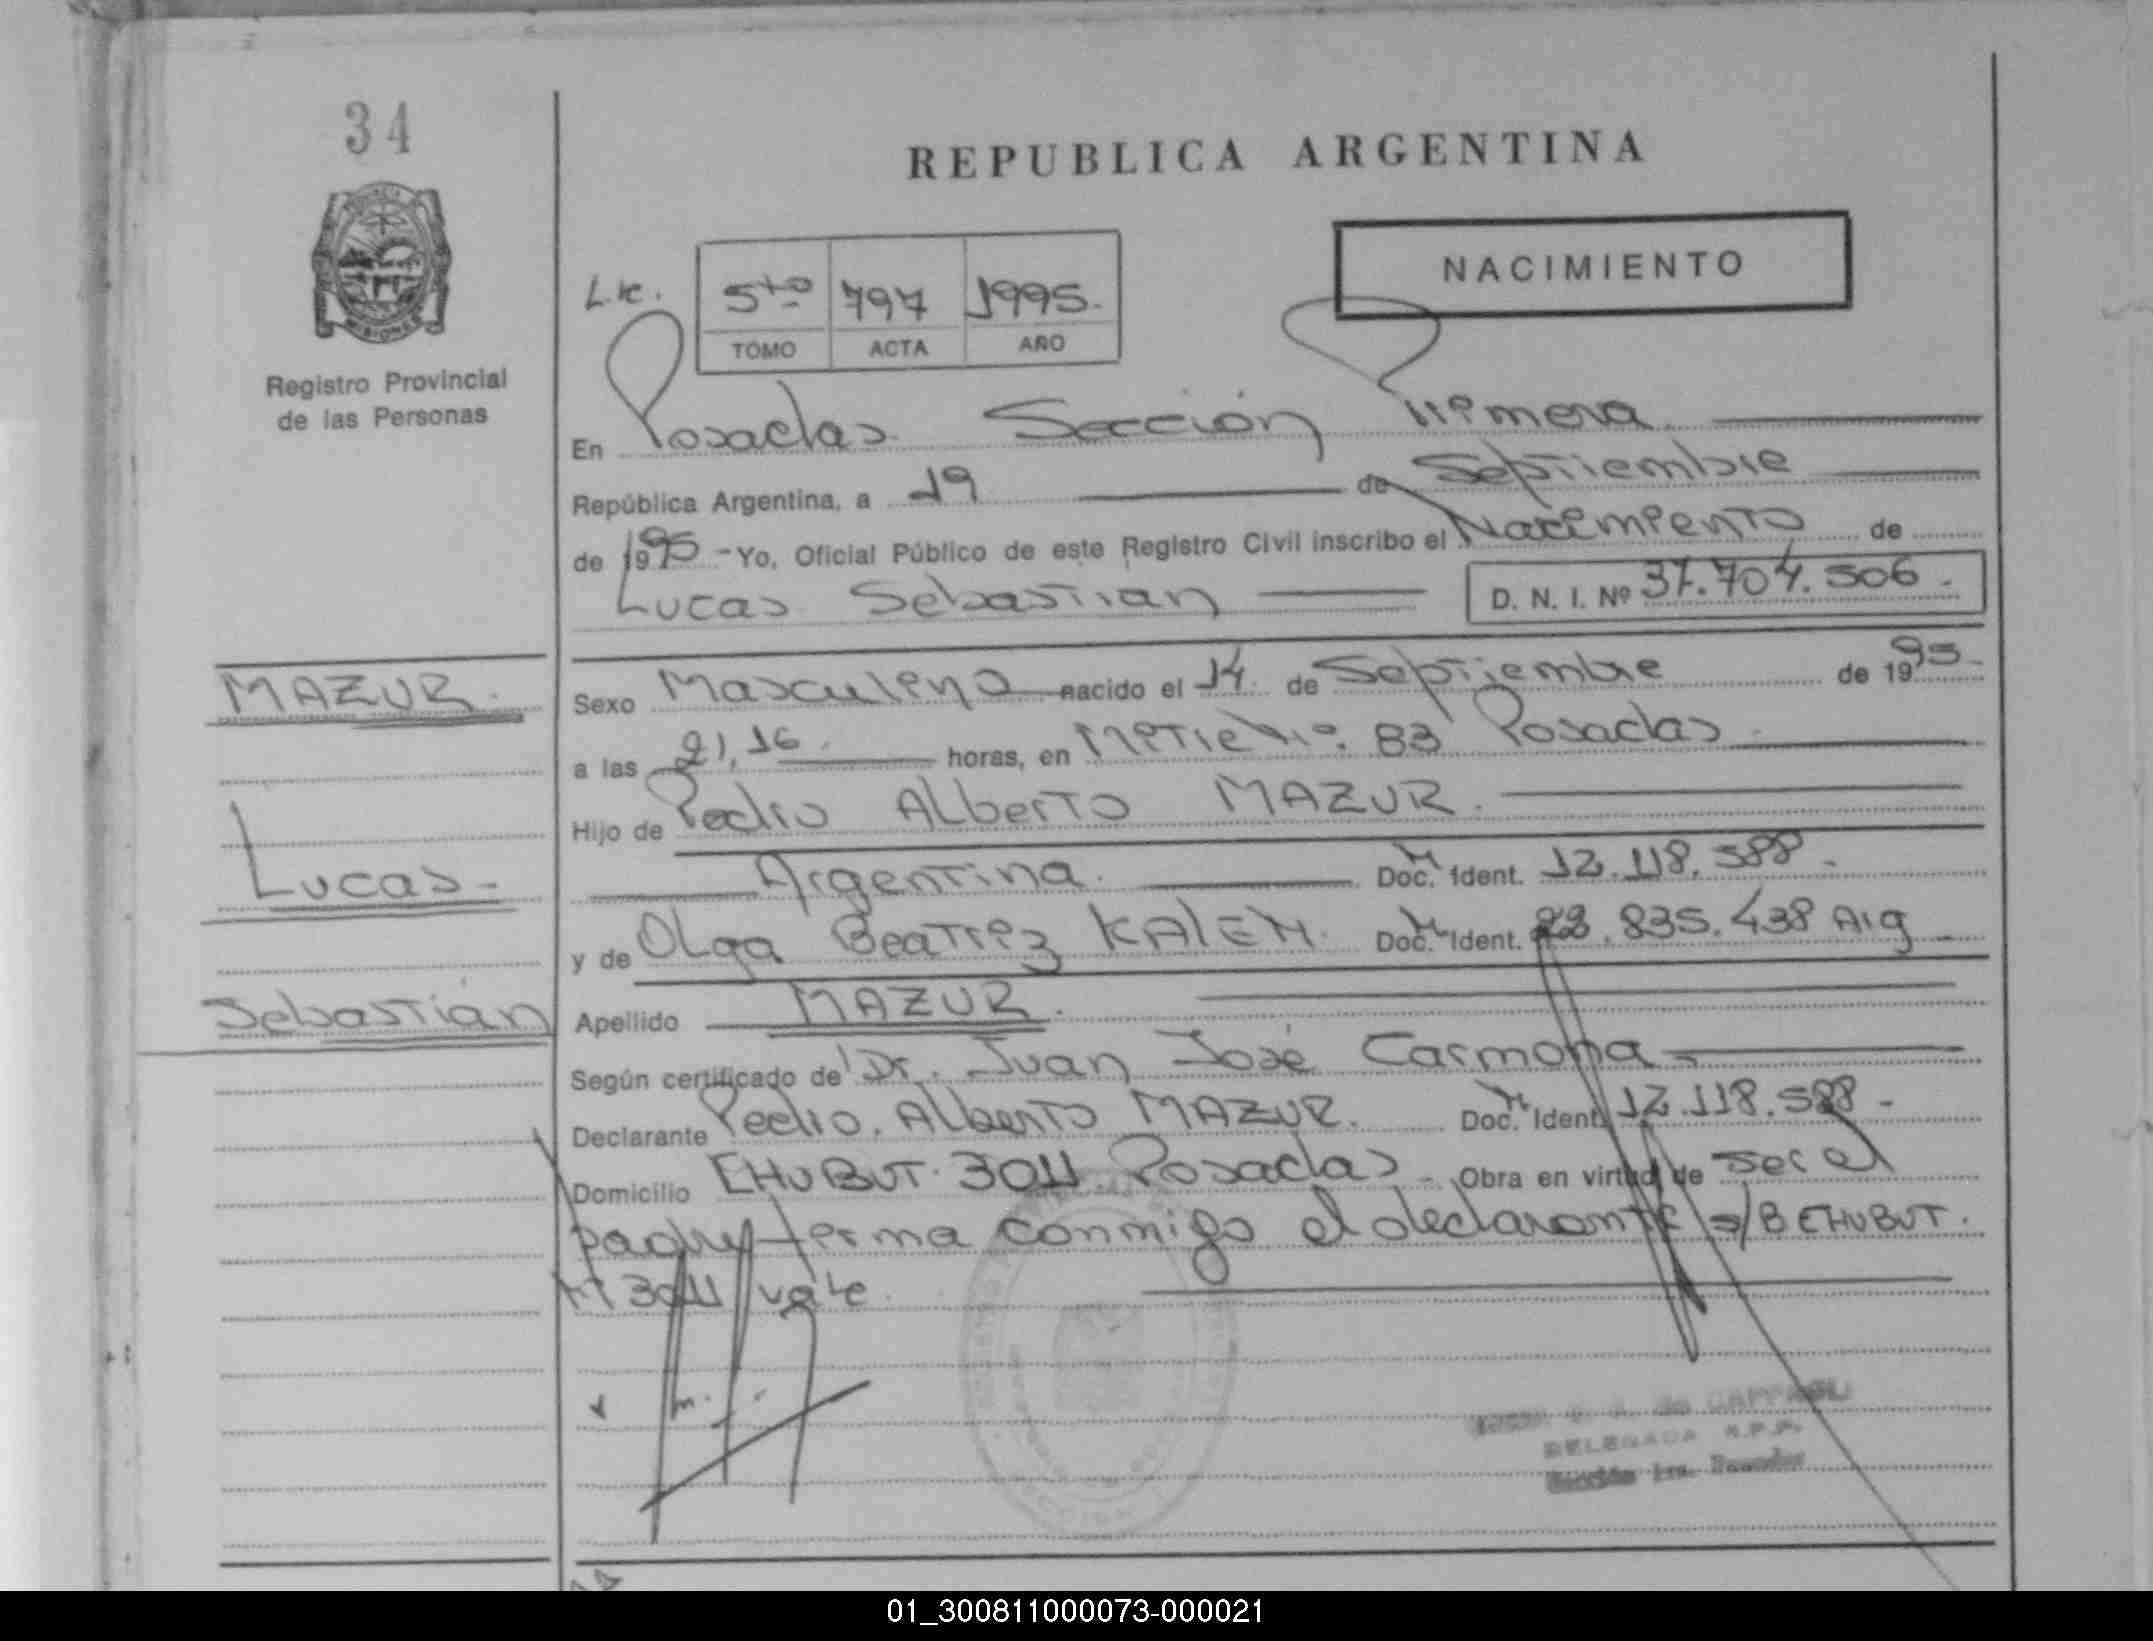 34
REPUBLICA ARGENTINA
NACIMIENTO
5to 797 1995.
TOMO ACTA AÑO
MISIONES
Registro Provincial
de las Personas
En Posadas Sección Primera
República Argentina, a 19 de Septiembre
de 1995 - Yo, Oficial Público de este Registro Civil inscribo el Nacimiento de
Lucas Sebastian D. N. I. Nº 37.704.506.
MAZUR.
Sexo Masculino nacido el 14 de Septiembre de 1995.
a las 21,16. horas, en 83 Posadas
Hijo de Pedro Alberto MAZUR.
Lucas
Argentina. Doc. Ident. 12.118.588.
y de Olga Beatriz Doc. Ident. .835.438 Arg
Sebastián
Apellido MAZUR.
Según certificado de Dr. Juan José Carmona
Declarante Pedro Alberto MAZUR. Doc. Ident. 12.118.588 -
Domicilio CHUBUT 3011 Posadas Obra en virtud de ser el
padre firma conmigo el declarante s/B CHUBUT.
3011 vale
DELEGADA R.P.P.
Sección 1ra. Posadas
01_300811000073-000021